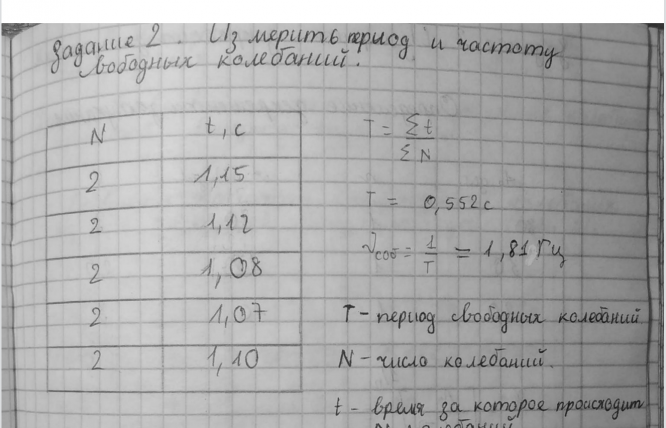 Задание 2. Измерить период и частоту
свободных колебаний.
N t, с
2 1,15
2 1,12
2 1,08
2 1,07
2 1,10
T = Σt / ΣN
T = 0,552 с
ν соб = 1/T = 1,81 Гц
T - период свободных колебаний
N - число колебаний.
t - время за которое происходит
N колебаний